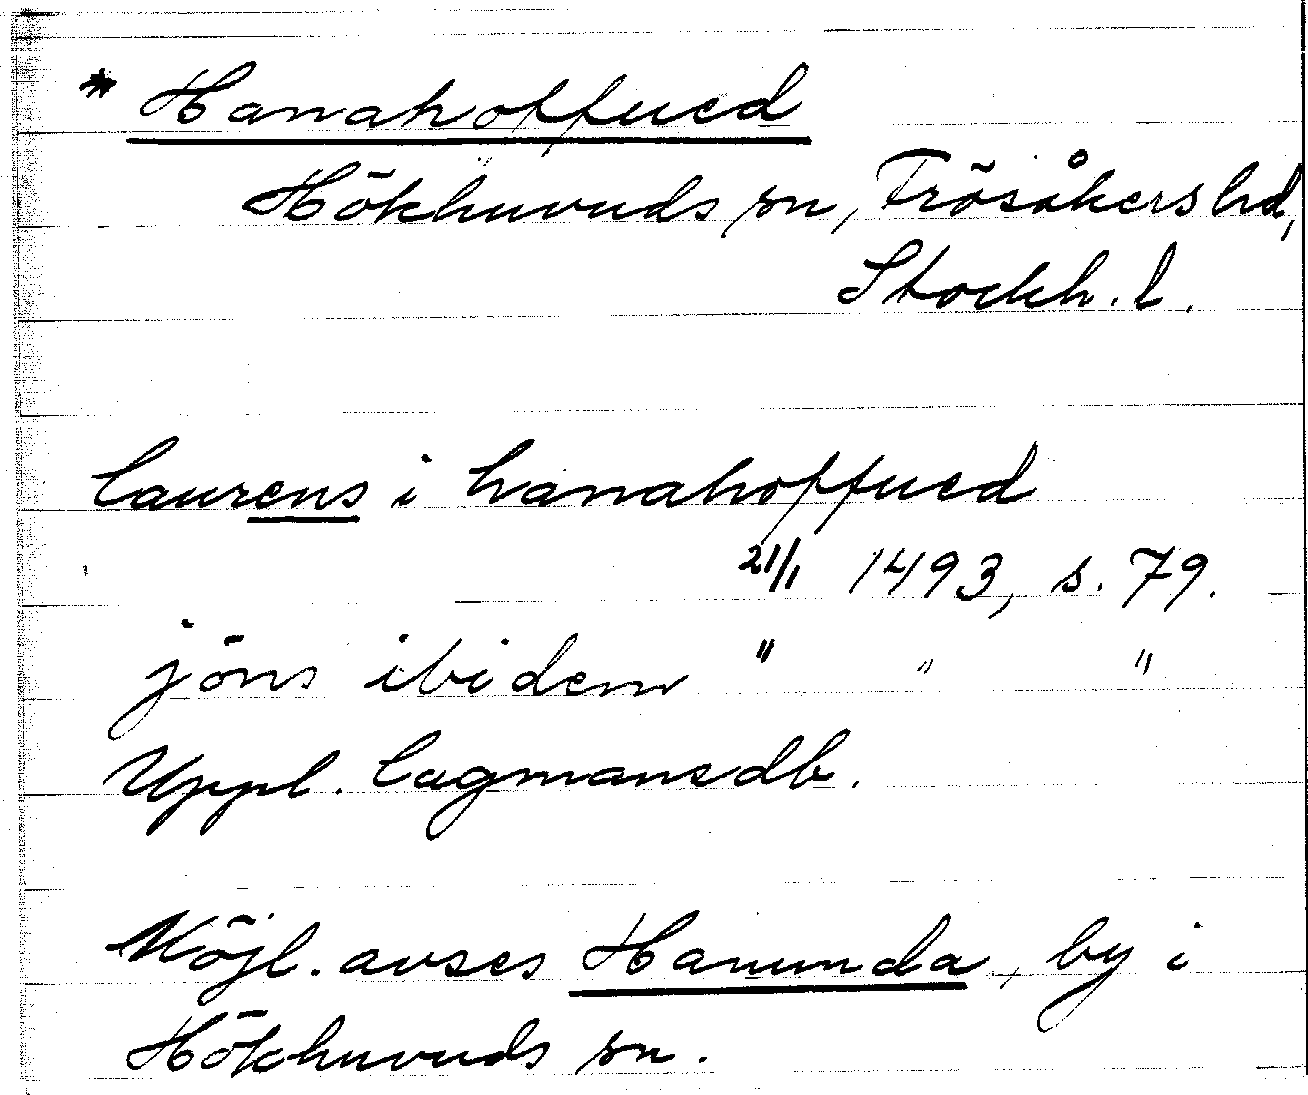 * Hanahoffued
Hökhuvuds sn, Frösåkers hd,
Stockh. l.
laurens i hanahoffued
21/1 1493, s. 79.
jöns ibidem " " "
Uppl. lagmansdb.
Möjl. avses Hanunda, by i
Hökhuvuds sn.